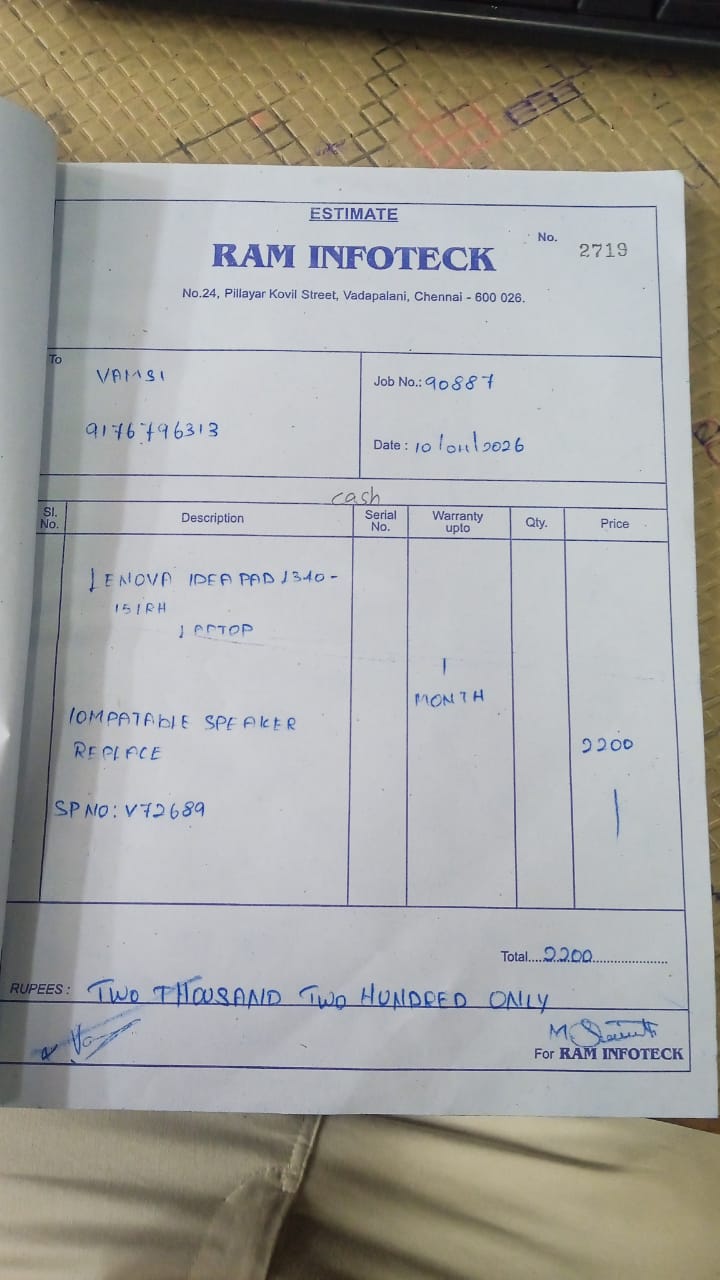 ESTIMATE
No. 2719
RAM INFOTECK
No.24, Pillayar Kovil Street, Vadapalani, Chennai - 600 026.
To
VAMSI
9176796313
Job No.: 90887
Date : 10/01/2026
cash
Sl. No. Description Serial No. Warranty upto Qty. Price
LENOVA IDEAPAD L340-
15IRH
LAPTOP
1
MONTH
COMPATABLE SPEAKER
REPLACE
2200
SP NO: V72689
Total....2200....................
RUPEES : TWO THOUSAND TWO HUNDRED ONLY
For RAM INFOTECK